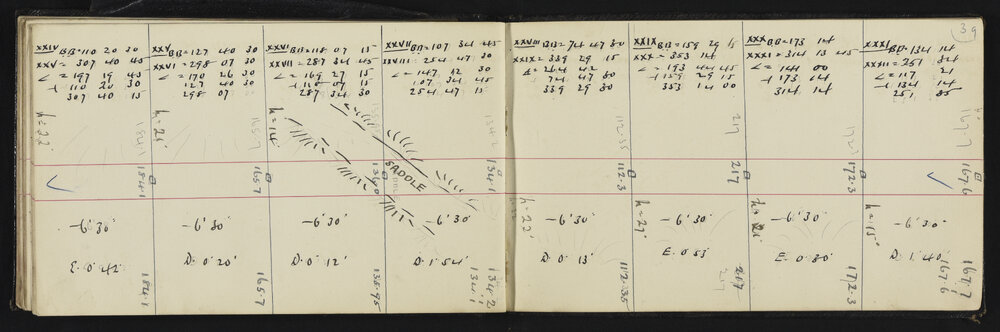 39
XXIV BB=110 20 30
XXV = 307 40 45
< = 197 19 45
+ 110 20 30
307 40 15
XXV BB=127 40 30
XXVI = 298 07
< = 170 26 30
127 40 30
298 07
XXVI BB=118 07 15
XXVII = 287 34 30
< = 169 27 15
287 34 30
XXVII BB=107 34 45
XXVIII = 254 47 30
< = 147 12 30
107 34 45
254 47 15
XXVIII BB=74 47 30
XXIX = 339 29 15
< = 264 42
+ 74 47 30
339 29 30
XXIX BB=159 29 15
XXX = 353 14
< = 193 44 45
+ 159 29 15
353 14 00
XXX BB=173 14
XXXI = 314 13 45
< = 141 00
+ 173 14
314 14
XXXI BB=134 14
XXXII = 251
< = 117 21
+ 134 14
251 35
h=22'
184.1
h=21'
165.7
h=14'
SADDLE
134.2
112.35
217
h=22'
h=27'
h=21'
h=15'
184.1
165.7
136.0
134.1
112.3
217
172.3
167.6
-6'30"
-6'30"
-6'30"
-6'30"
-6'30"
-6'30"
-6'30"
-6'30"
E. 0'42"
D. 0'20"
D. 0'12"
D. 1'54"
D. 0'13"
E. 0'53"
E. 0'30"
D. 1'40"
184.1
165.7
135.95
134.2
134.1
112.35
217
172.3
167.6
167.7